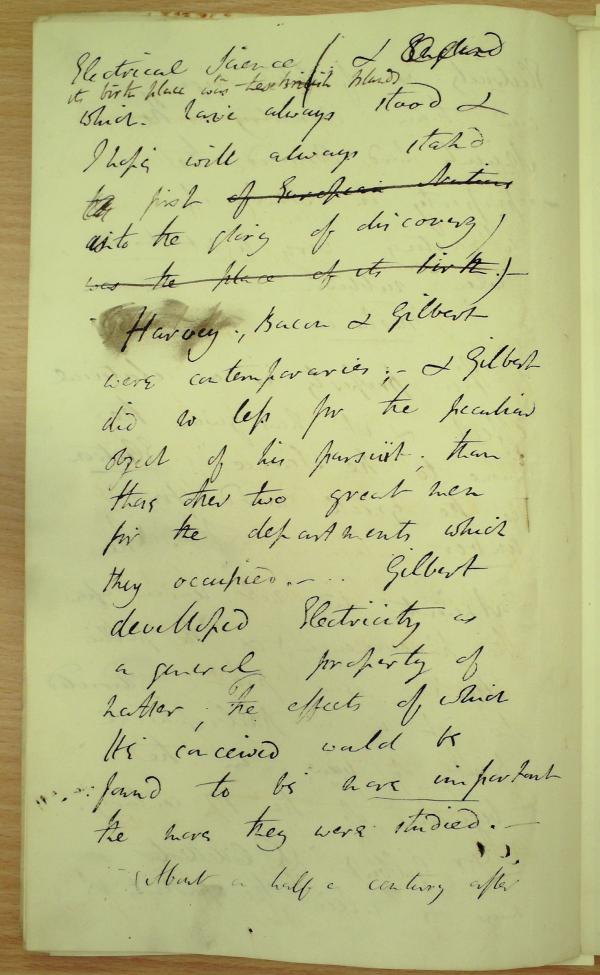 Electrical Science / & England
its birth place was these British Islands
which have always stood &
I hope will always stand
first of European Nations
as to the glory of discovery)
was the place of its birth.)-
Harvey, Bacon & Gilbert
were contemporaries; - & Gilbert
did no less for the peculiar
object of his pursuit; than
these other two great men
for the departments which
they occupied. - . . Gilbert
developed Electricity as
a general property of
matter; the effects of which
He conceived would be
found to be more important
the more they were studied. -
(About a half a century after